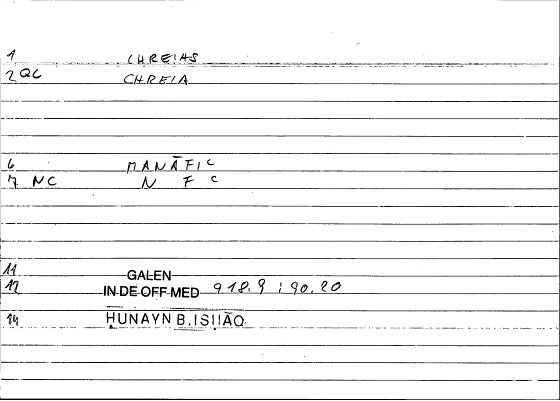 1 CHREIAS
2 QC CHREIA
6 MANĀFIC
7 NC N F C
11 GALEN
12 IN DE OFF MED 918.9 ; 90.20
14 ḤUNAYN B. ISḤĀQ